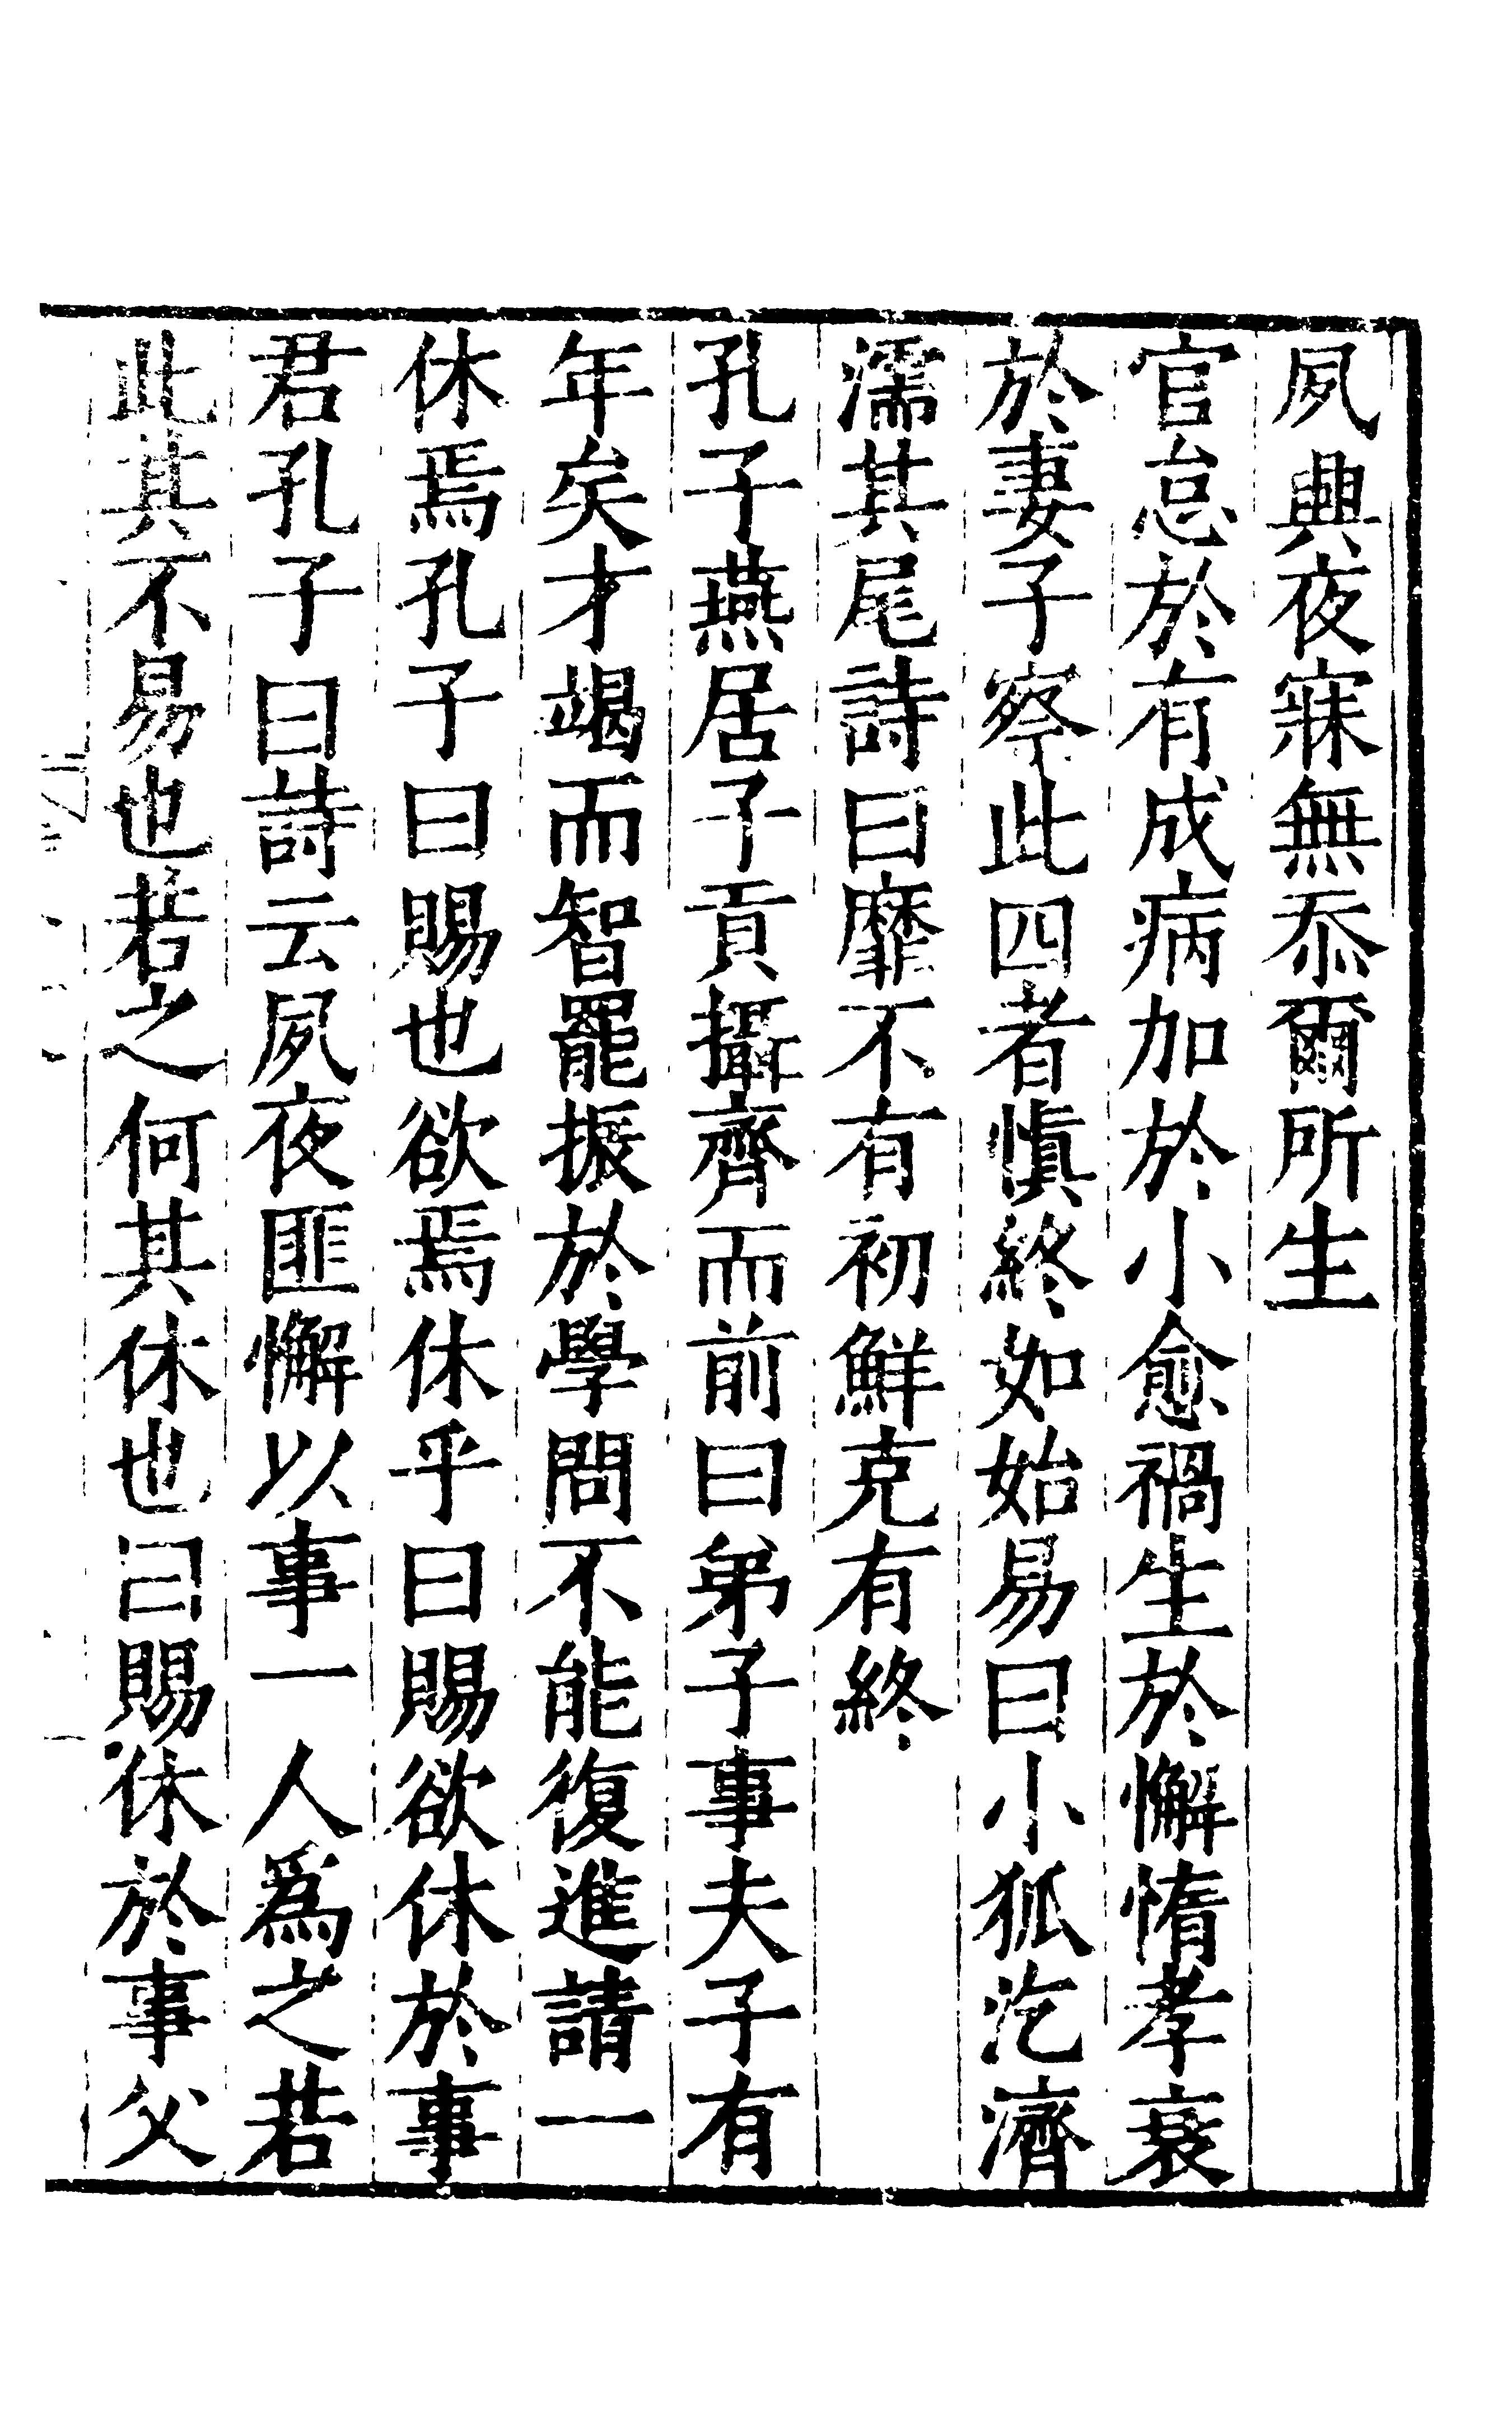 夙興夜寐無忝爾所生
官怠於有成病加於小愈禍生於懈惰孝衰
於妻子察此四者慎終如始易曰小狐汔濟
濡其尾詩曰靡不有初鮮克有終
孔子燕居子貢攝齊而前曰弟子事夫子有
年矣才竭而智罷振於學問不能復進請一
休焉孔子曰賜也欲焉休乎曰賜欲休於事
君孔子曰詩云夙夜匪懈以事一人爲之若
此其不易也若之何其休也曰賜休於事父